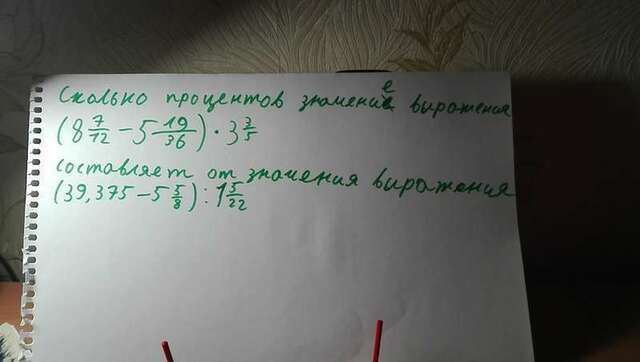 Сколько процентов значение выражения
(8 7/12 - 5 19/36) · 3 3/5
составляет от значения выражения
(39,375 - 5 5/8) : 1 5/22